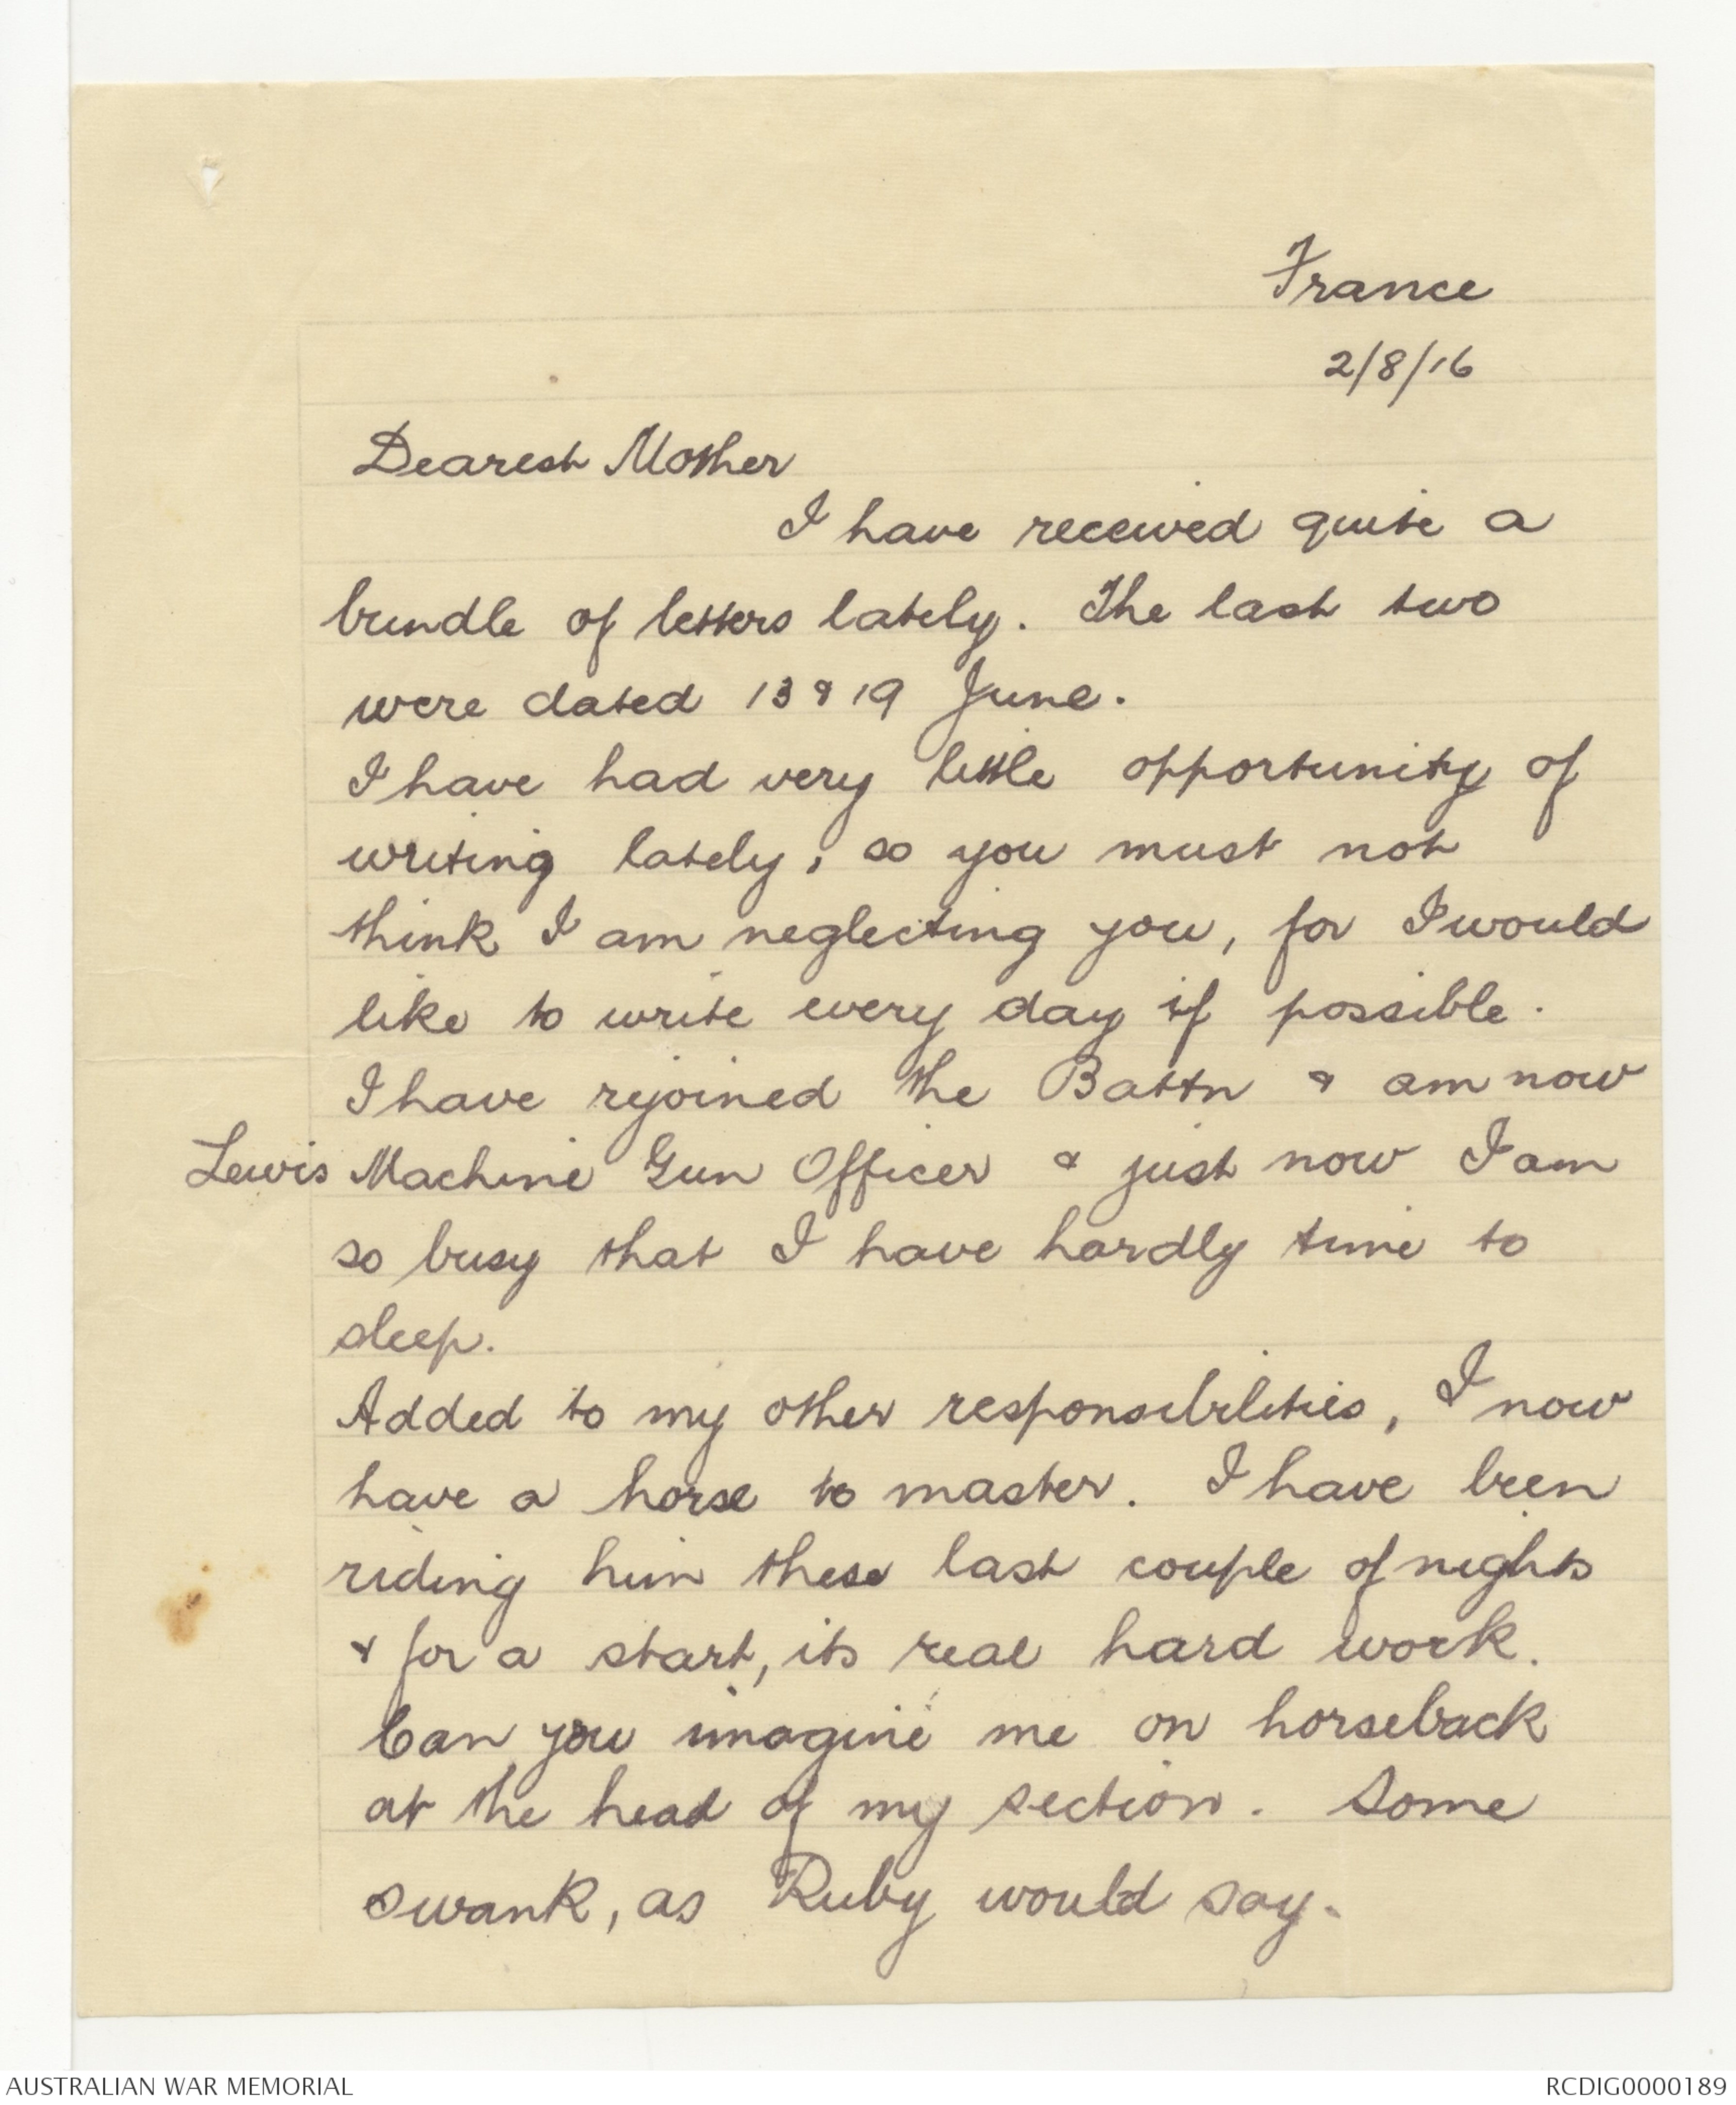 France
2/8/16
Dearest Mother
I have received quite a
bundle of letters lately. The last two
were dated 13 & 19 June.
I have had very little opportunity of
writing lately, so you must not
think I am neglecting you, for I would
like to write every day if possible.
I have rejoined the Battn & am now
Lewis Machine Gun Officer & just now I am
so busy that I have hardly time to
sleep.
Added to my other responsibilities, I now
have a horse to master. I have been
riding him these last couple of nights
& for a start, its real hard work.
Can you imagine me on horseback
at the head of my section. Some
swank, as Ruby would say.
AUSTRALIAN WAR MEMORIAL
RCDIG0000189